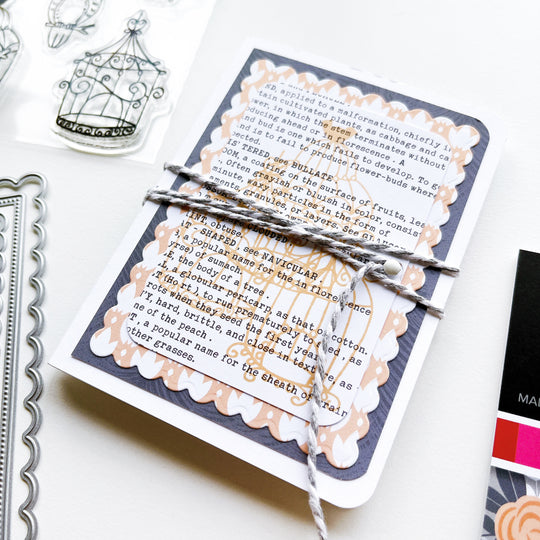 ND, applied to a malformation, chiefly i
tain cultivated plants, as cabbage and ca
ower, in which the stem terminates without
oducing ahead or in florescence. A
nd bud is one which fails to develop. To go
nd is to fail to produce flower-buds where
pected.
IS TERED, see BULLATE.
OOM, a coating on the surface of fruits, les
. Often grayish or bluish in color, consist
minute, waxy particles in the form of
agents, granules, or layers. See
UNT, obtuse.
T - SHAPED, see NAVICULAR
, a popular name for the in florescence
yrse) of sumach.
E, the body of a tree.
L, a globular pericarp, as that of cotton.
T (Ho rt.) to run prematurely to seed, as
rots when they seed the first year.
Y, hard, brittle, and close in texture, as
ne of the peach.
T, a popular name for the sheath of rain
other grasses.
MA